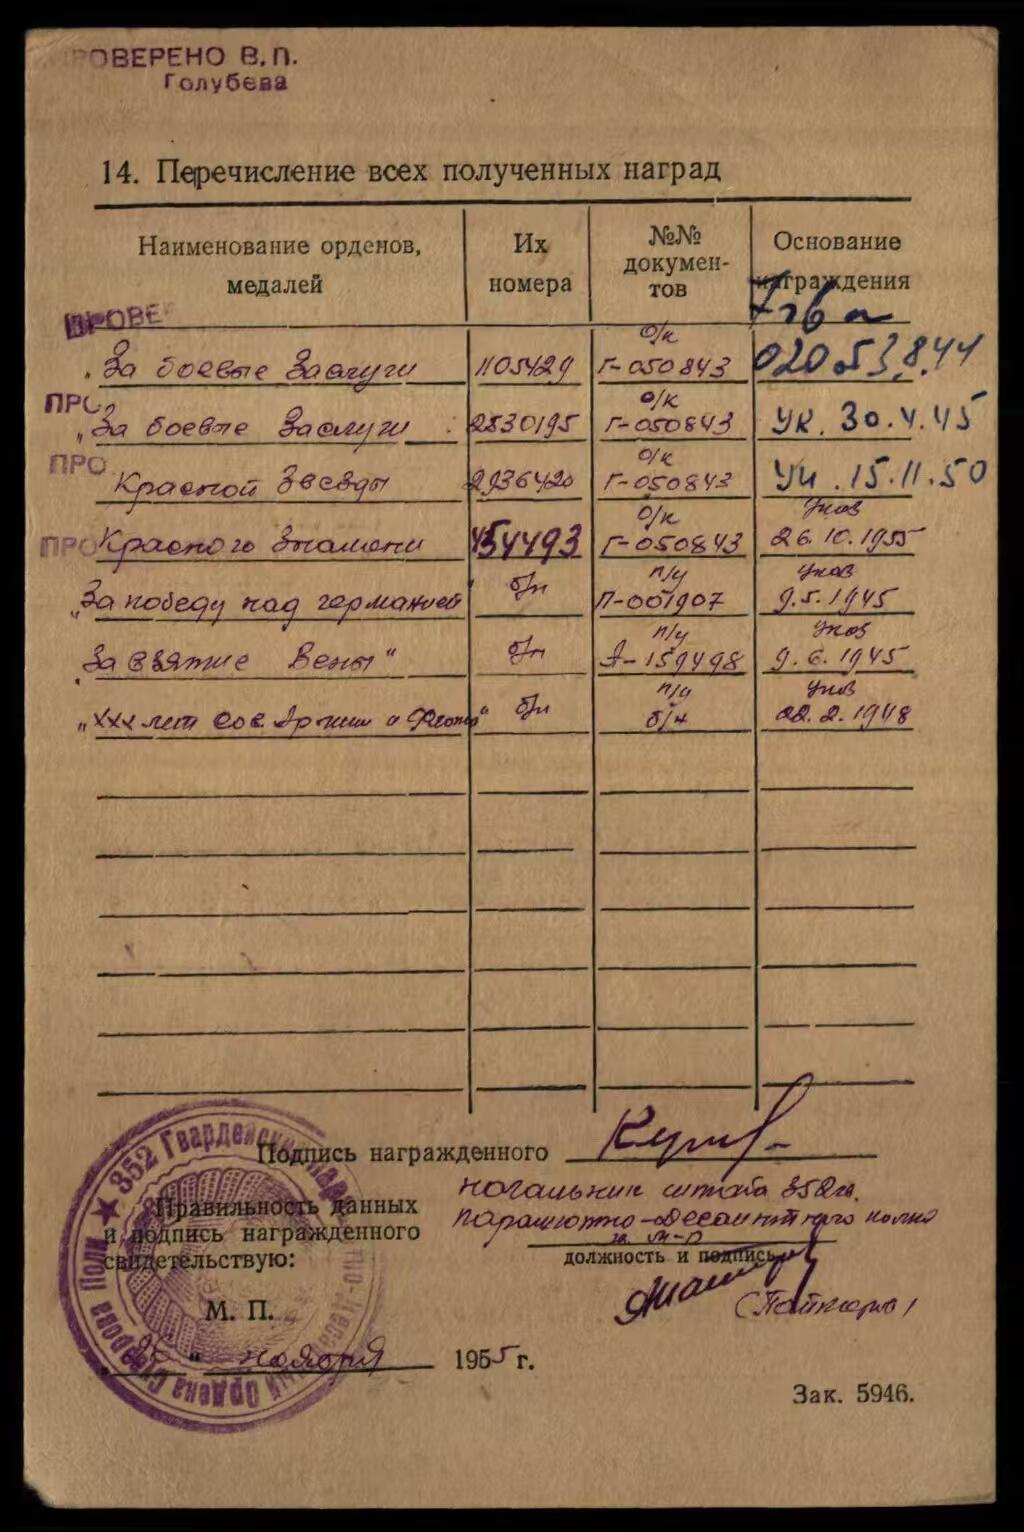 ПРОВЕРЕНО В.П.
Голубева
14. Перечисление всех полученных наград
Наименование орденов, медалей
Их номера
№№ документов
Основание награждения
7 гв а
ПРОВЕ
„За боевые Заслуги 1105429 о/к Г-050843 020 53,8.44
ПРО
„За боевые Заслуги 2830195 о/к Г-050843 Ук. 30.4.45
ПРО
Красной Звезды 2936420 о/к Г-050843 Ук. 15.11.50
ПРО
Красного Знамени 454493 о/к Г-050843 Указ 26.10.1955
„За победу над германией" б/н п/у П-001907 Указ 9.5.1945
„За взятие Вены" б/н п/у А-159498 Указ 9.6.1945
„XXX лет Сов. Армии и Флота" б/н п/у б/н Указ 22.2.1948
Подпись награжденного
Правильность данных
и подпись награжденного
свидетельствую:
начальник штаба 352 гв.
парашютно-десантного полка
гв. м-р
должность и подпись
М. П.
„26" ноября 1955 г.
Зак. 5946.
★ 352 Гвардейский Ордена Суворова Полк